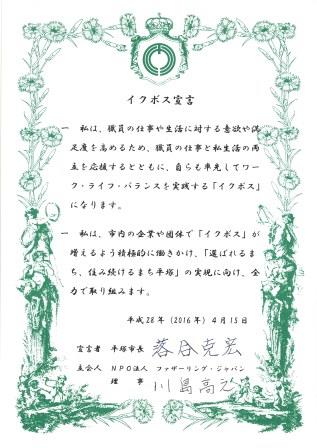 イクボス宣言
一 私は、職員の仕事や生活に対する意欲や満
足度を高めるため、職員の仕事と私生活の両
立を応援するとともに、自らも率先してワー
ク・ライフ・バランスを実践する「イクボス」
になります。
一 私は、市内の企業や団体で「イクボス」が
増えるよう積極的に働きかけ、「選ばれるま
ち、住み続けるまち平塚」の実現に向け、全
力で取り組みます。
平成28年(2016年)4月15日
宣言者 平塚市長 落合克宏
立会人 NPO法人 ファザーリング・ジャパン
理事 川島高之